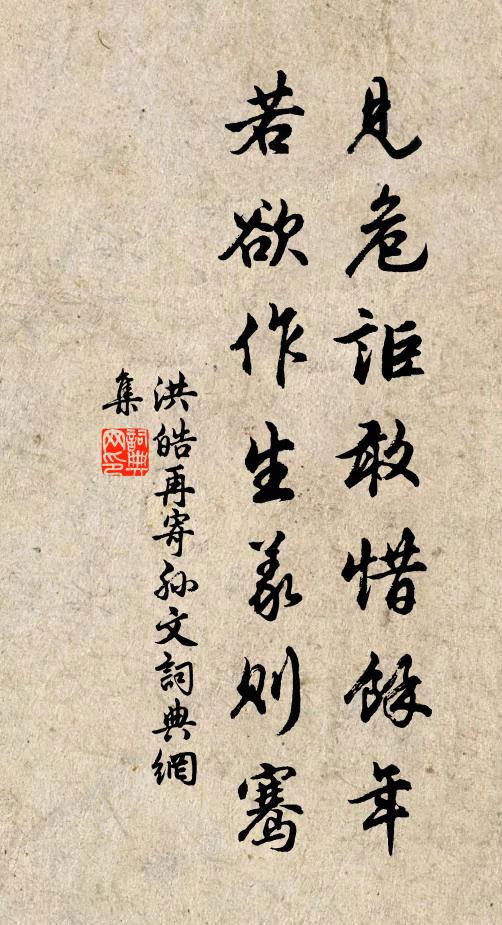 見危詎敢惜餘年
若欲作生義則騫
洪皓再寄孙文詞典網
集
詞典
网印